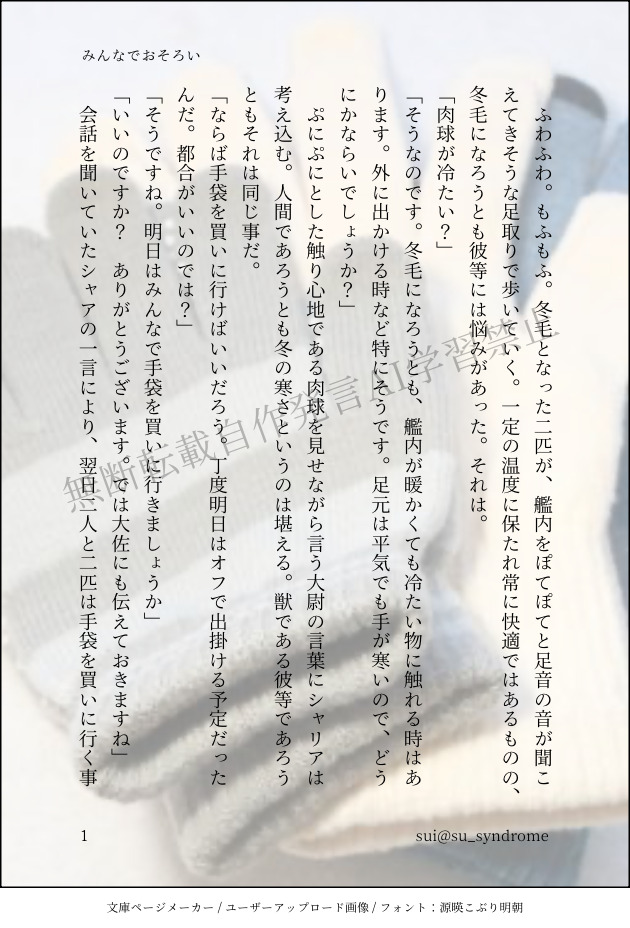 みんなでおそろい
　ふわふわ。もふもふ。冬毛となった二匹が、艦内をぽてぽてと足音の音が聞こ
えてきそうな足取りで歩いていく。一定の温度に保たれ常に快適ではあるものの、
冬毛になろうとも彼等には悩みがあった。それは。
「肉球が冷たい？」
「そうなのです。冬毛になろうとも、艦内が暖かくても冷たい物に触れる時はあ
ります。外に出かける時など特にそうです。足元は平気でも手が寒いので、どう
にかならいでしょうか？」
　ぷにぷにとした触り心地である肉球を見せながら言う大尉の言葉にシャリアは
考え込む。人間であろうとも冬の寒さというのは堪える。獣である彼等であろう
ともそれは同じ事だ。
「ならば手袋を買いに行けばいいだろう。丁度明日はオフで出掛ける予定だった
んだ。都合がいいのでは？」
「そうですね。明日はみんなで手袋を買いに行きましょうか」
「いいのですか？　ありがとうございます。では大佐にも伝えておきますね」
　会話を聞いていたシャアの一言により、翌日二人と二匹は手袋を買いに行く事
無断転載自作発言AI学習禁止
1
sui@su_syndrome
文庫ページメーカー / ユーザーアップロード画像 / フォント：源暎こぶり明朝